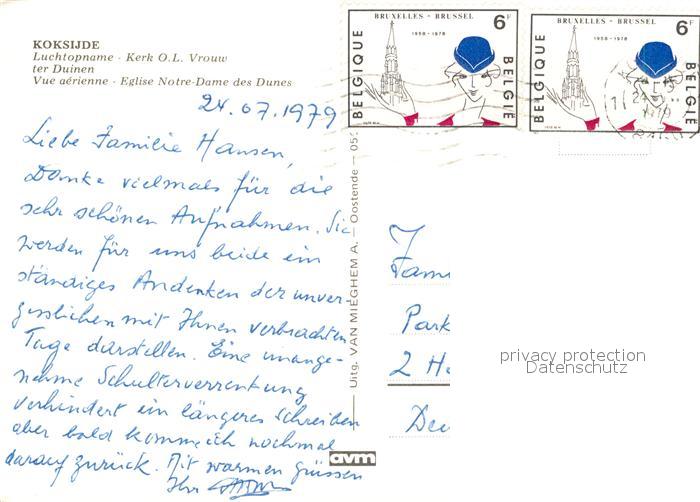 KOKSIJDE
Luchtopname - Kerk O.L. Vrouw
ter Duinen
Vue aérienne - Eglise Notre-Dame des Dunes
24.07.1979
Liebe Familie Hansen,
Danke vielmals für die
sehr schönen Aufnahmen. Sie
werden für uns beide ein
ständiges Andenken der unver-
gesslichen mit Ihnen verbrachten
Tage darstellen. Eine unange-
nehme Schulterverrenkung
verhindert ein längeres Schreiben
aber bald komme ich nochmal
darauf zurück. Mit warmen Grüssen
Ihr
Uitg. VAN MIEGHEM A. - Oostende - 059
avm
BRUXELLES - BRUSSEL
6F
1958-1978
BELGIQUE
BELGIË
BRUXELLES - BRUSSEL
6F
1958-1978
BELGIQUE
BELGIË
Fami
Park
2 H
Deu
privacy protection
Datenschutz